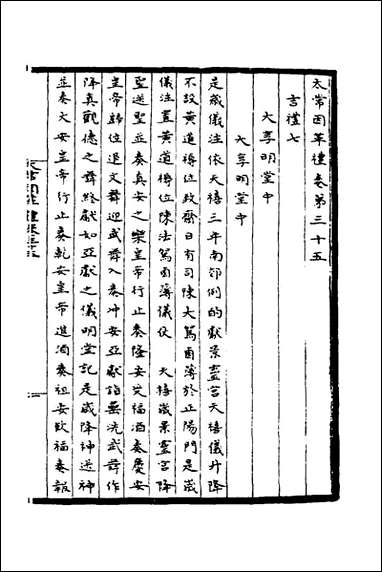 太常因革禮卷第三十五
吉禮七
大享明堂中
大享明堂中
是歲儀注依天禧三年南郊例的獻景靈宮天禧儀升降
不設黃道褥位致齋日有司陳大駕鹵簿於正陽門是歲
儀注置黃道褥位陳法駕鹵簿儀仗 天禧歲景靈宮降
聖送聖並奏真安之樂皇帝行止奏隆安受福酒奏慶安
皇帝歸位退文舞迎武舞入奏冲安亞獻詣罍洗武舞作
降真觀德之舞終獻如亞獻之儀明堂記是歲降神送神
並奏大安皇帝行止奏乾安皇帝進酒奏祖安飲福奏報